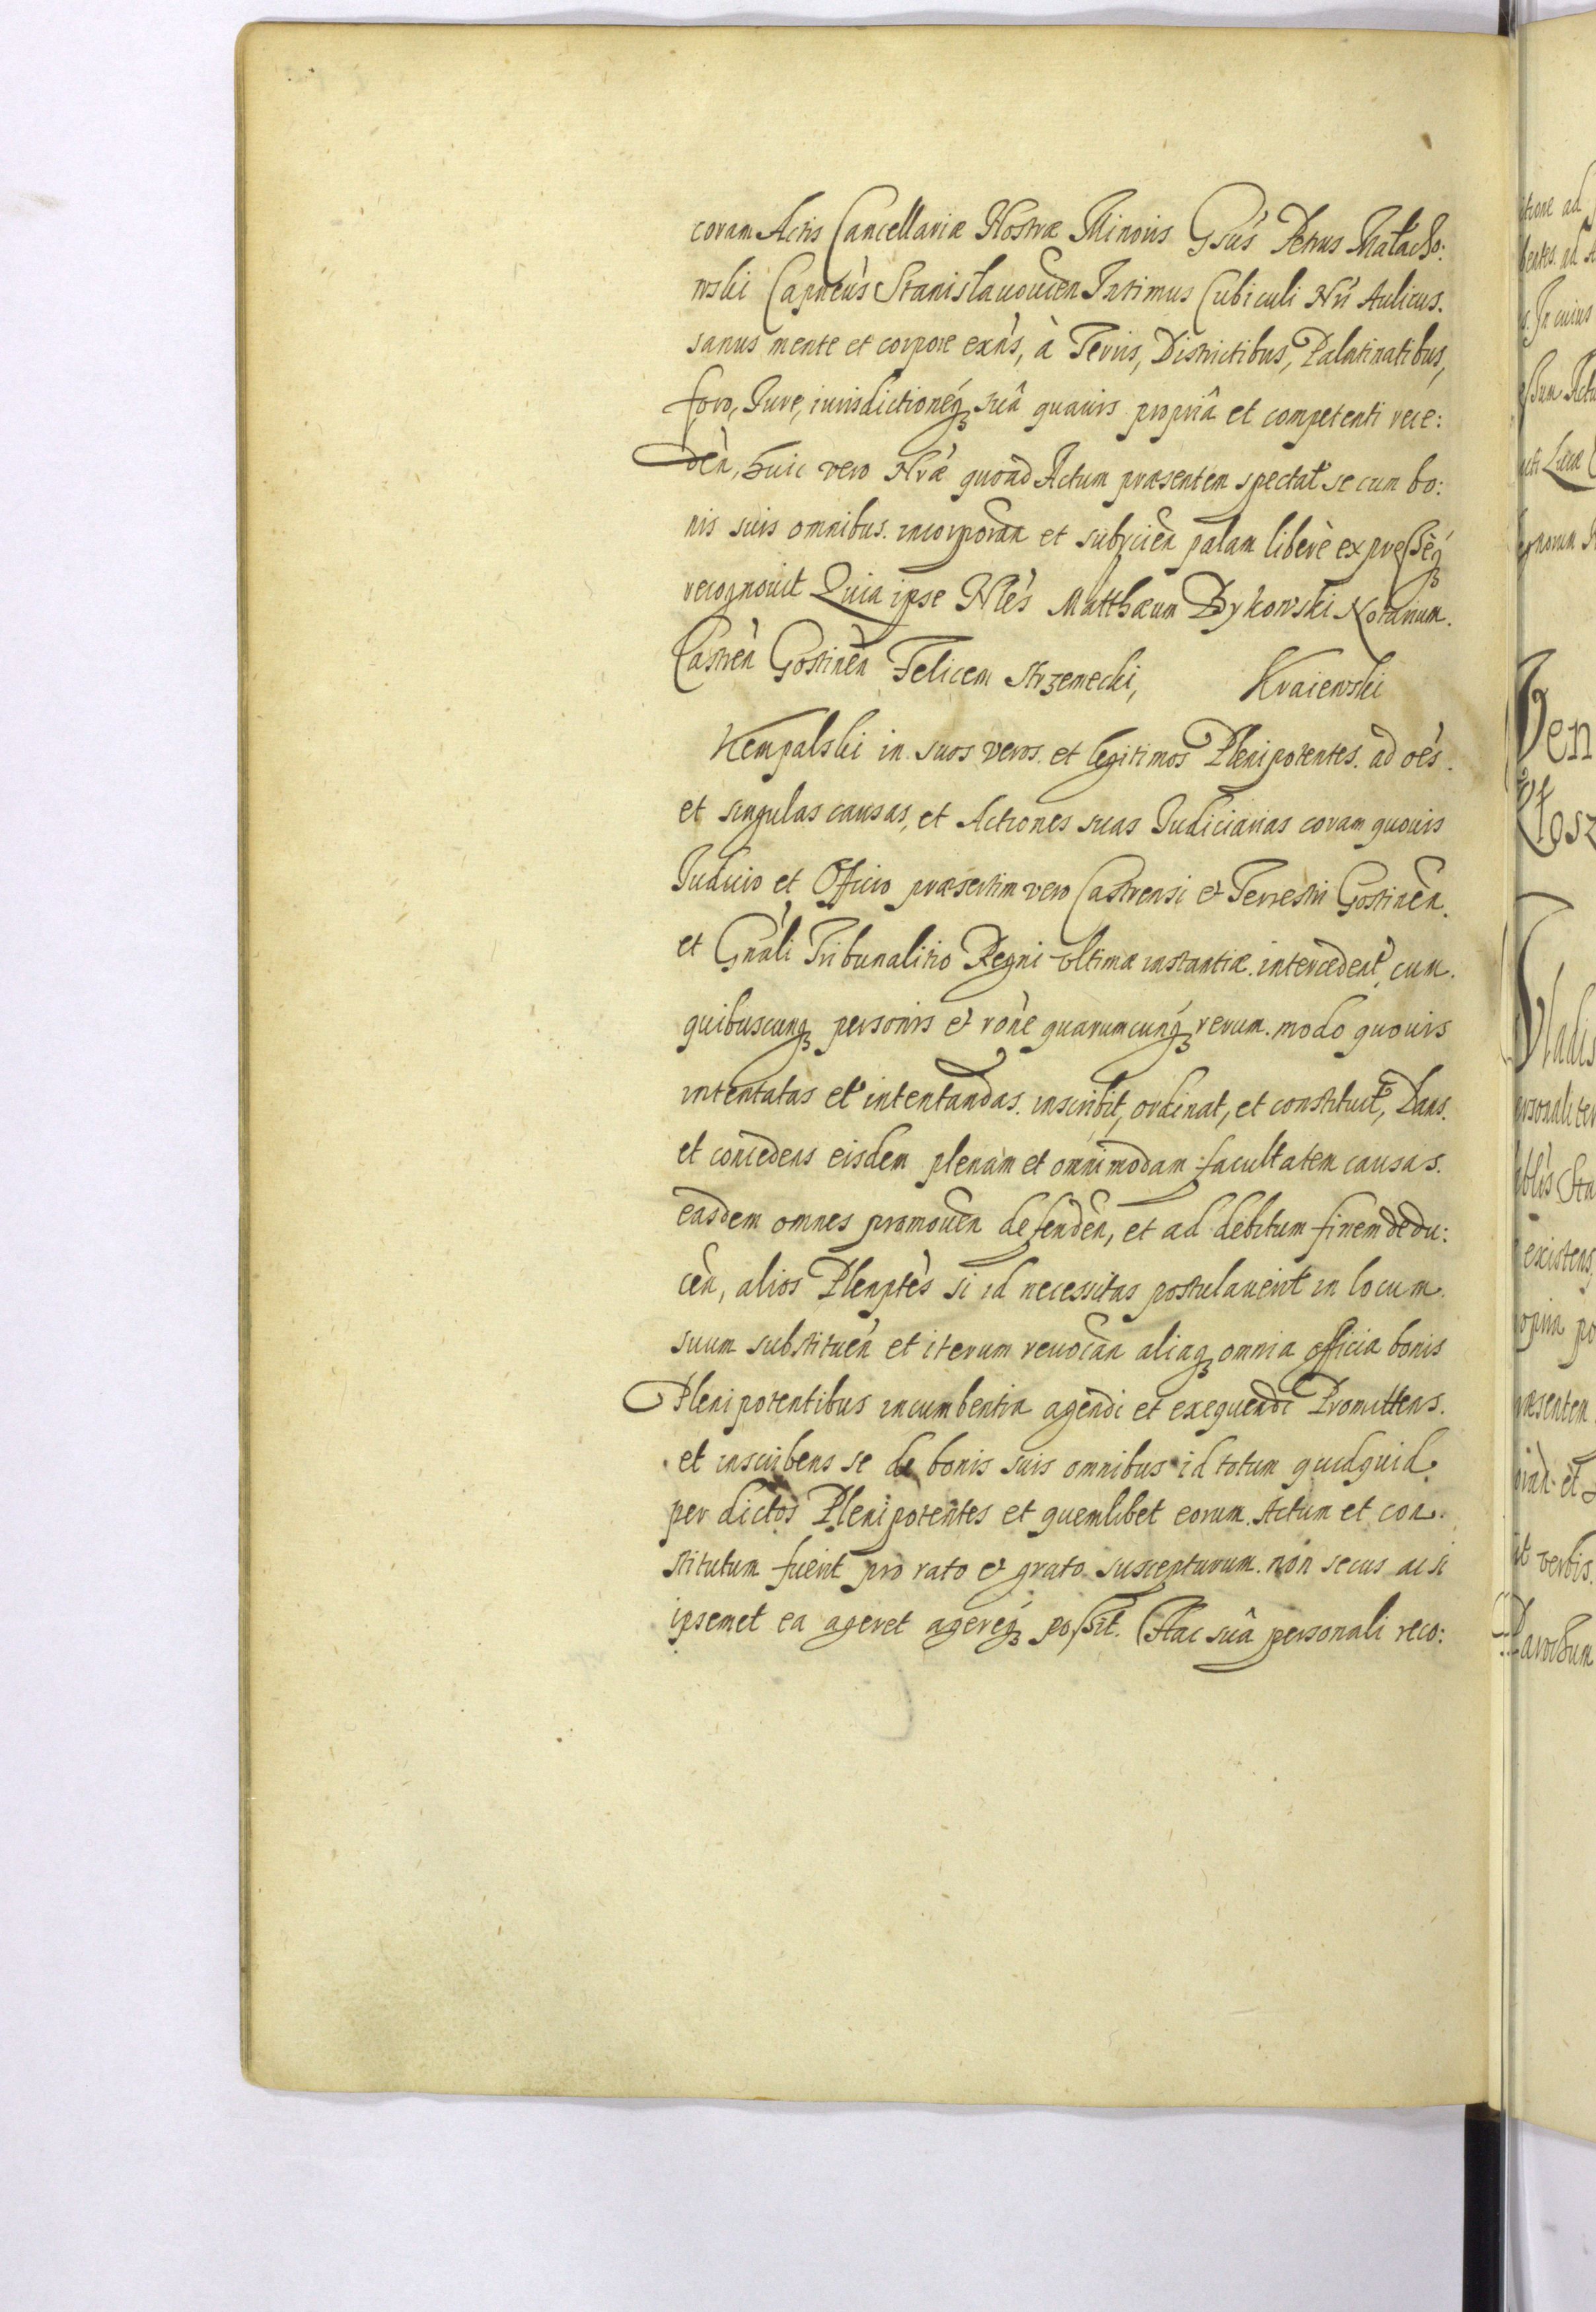 coram Actis Cancellariæ Nostræ Minoris Gsùs Petrus Małacho:
wski Capneùs Stanisłauoviden Intimus Cubiculi Nri Aulicus.
sanus mente et corpore exñs, à Terris, Districtibus, Palatinatibus,
foro, Iure, iurisdictioneq; suâ quavis propriâ et competenti rece:
deñ, huic vero Nræ quoad Actum præsentem spectat se cum bo:
nis suis omnibus incorporan et subijcien palam liberè expresseq;
recognovit Quia ipse Nles Matthæum Bykowski Notarium
Castren Gostinen Felicem Strzemecki, Kraiewski
Kempalski in suos veros et legitimos Plenipotentes ad oes
et singulas causas, et Actiones suas Iudiciarias coram quovis
Iudicio et Officio præsertim vero Castrensi et Terrestri Gostinen
et Gnali Tribunalitio Regni vltimæ instantiæ intercedent, cum
quibuscunq; personis et roñe quarumcunq; rerum modo quouis
intentatas et intentandas inscribit, ordinat, et constituit, Dans
et concedens eisdem plenam et omnimodam facultatem causas
easdem omnes promoven defenden, et ad debitum finem dedu:
cen, alios Plenptes si id necessitas postulaverit in locum
suum substituen et iterum reuocan aliaq; omnia officia bonis
Plenipotentibus incumbentia agendi et exequendi Promittens
et inscribens se de bonis suis omnibus id totum quidquid
per dictos Plenipotentes et quemlibet eorum Actum et con
stitutum fuerit pro rato et grato suscepturum non secus ac si
ipsemet ea ageret agereq; possit. Hac suâ personali reco: